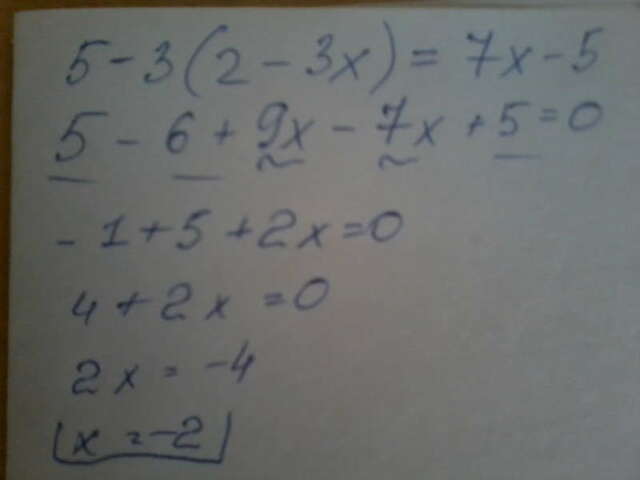 5 - 3(2 - 3x) = 7x - 5
5 - 6 + 9x - 7x + 5 = 0
- 1 + 5 + 2x = 0
4 + 2x = 0
2x = -4
x = -2